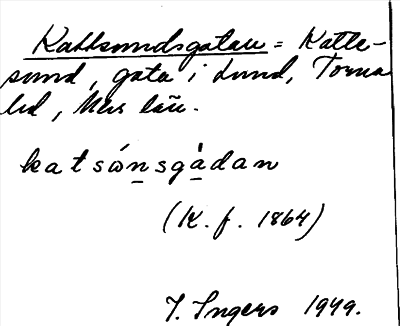 Kattsundsgatan = Katte-
sund, gata i Lund, Torna
hd, Mlms län.
katsónsgàdan
(K. f. 1864)
I. Ingers 1949.